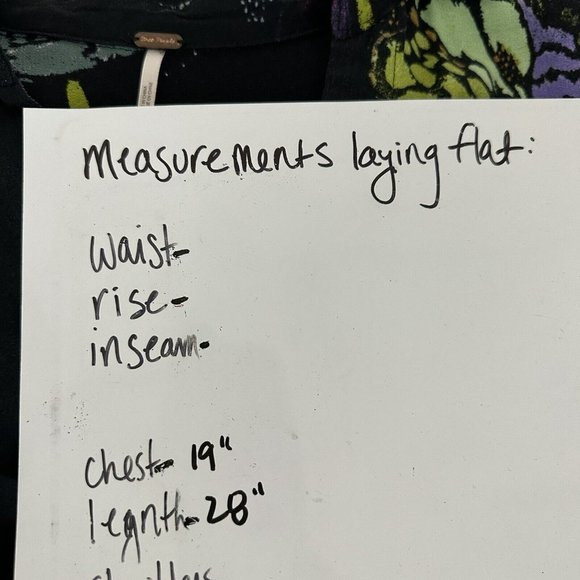 Free People
measurements laying flat:
waist-
rise-
inseam-
chest- 19"
legnth- 28"